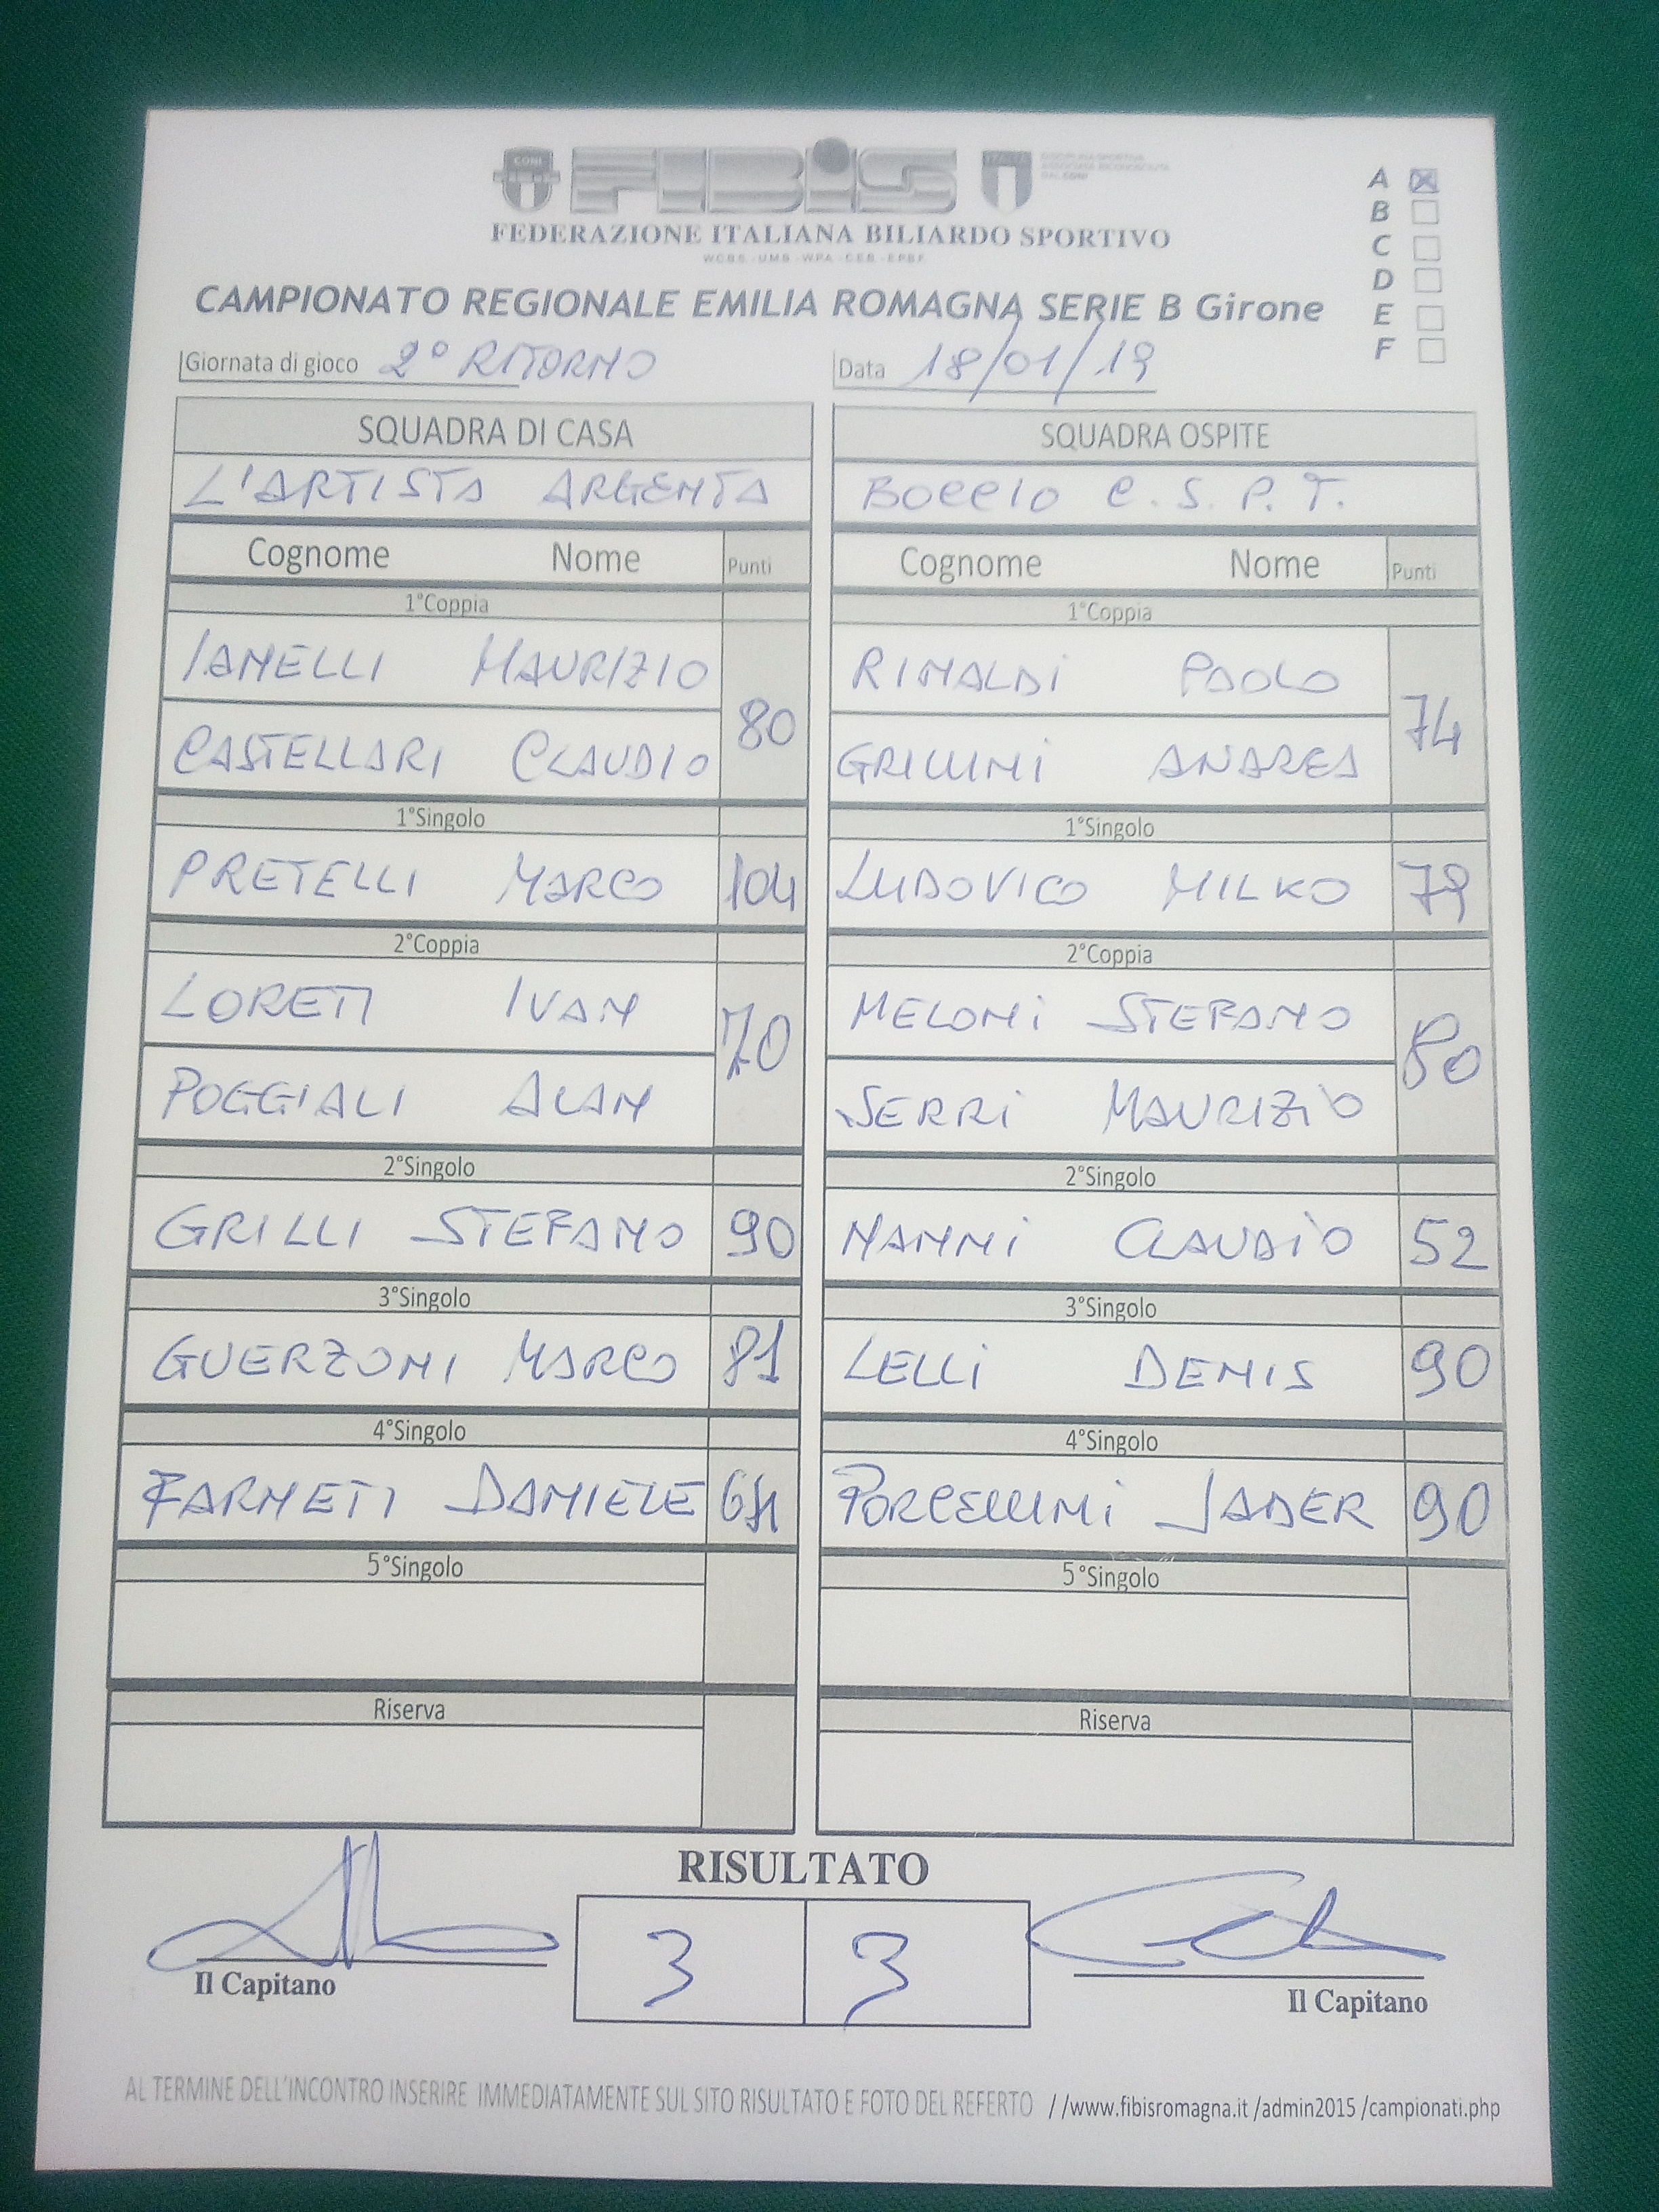 CONI FIBiS ITALIA DISCIPLINA SPORTIVA
ASSOCIATA RICONOSCIUTA
DAL CONI
FEDERAZIONE ITALIANA BILIARDO SPORTIVO
W.C.B.S. - U.M.B. - W.P.A. - C.E.B. - E.P.B.F.
A
B
C
D
E
F
CAMPIONATO REGIONALE EMILIA ROMAGNA SERIE B Girone
Giornata di gioco 2° RITORNO Data 18/01/19
SQUADRA DI CASA SQUADRA OSPITE
L'ARTISTA ARGENTA BOCCIO C.S.P.T.
Cognome Nome Punti Cognome Nome Punti
1°Coppia 1°Coppia
IANELLI MAURIZIO RINALDI PAOLO
80 74
CASTELLARI CLAUDIO GRILLINI ANDREA
1°Singolo 1°Singolo
PRETELLI MARCO 104 LUDOVICO MILKO 79
2°Coppia 2°Coppia
LORETI IVAN MELONI STEFANO
70 80
POGGIALI ALAN SERRI MAURIZIO
2°Singolo 2°Singolo
GRILLI STEFANO 90 NANNI CLAUDIO 52
3°Singolo 3°Singolo
GUERZONI MARCO 81 LELLI DENIS 90
4°Singolo 4°Singolo
FARNETI DANIELE 64 PORCELLINI JADER 90
5°Singolo 5°Singolo
Riserva Riserva
RISULTATO
3 3
Il Capitano Il Capitano
AL TERMINE DELL'INCONTRO INSERIRE IMMEDIATAMENTE SUL SITO RISULTATO E FOTO DEL REFERTO //www.fibisromagna.it/admin2015/campionati.php